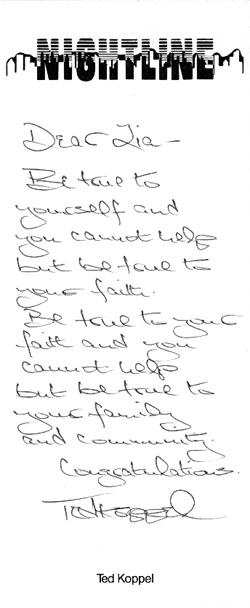 NIGHTLINE
Dear Lia -
Be true to
yourself and
you cannot help
but be true to
your faith.
Be true to your
faith and you
cannot help
but be true to
your family
and community.
Congratulations.
Ted Koppel
Ted Koppel